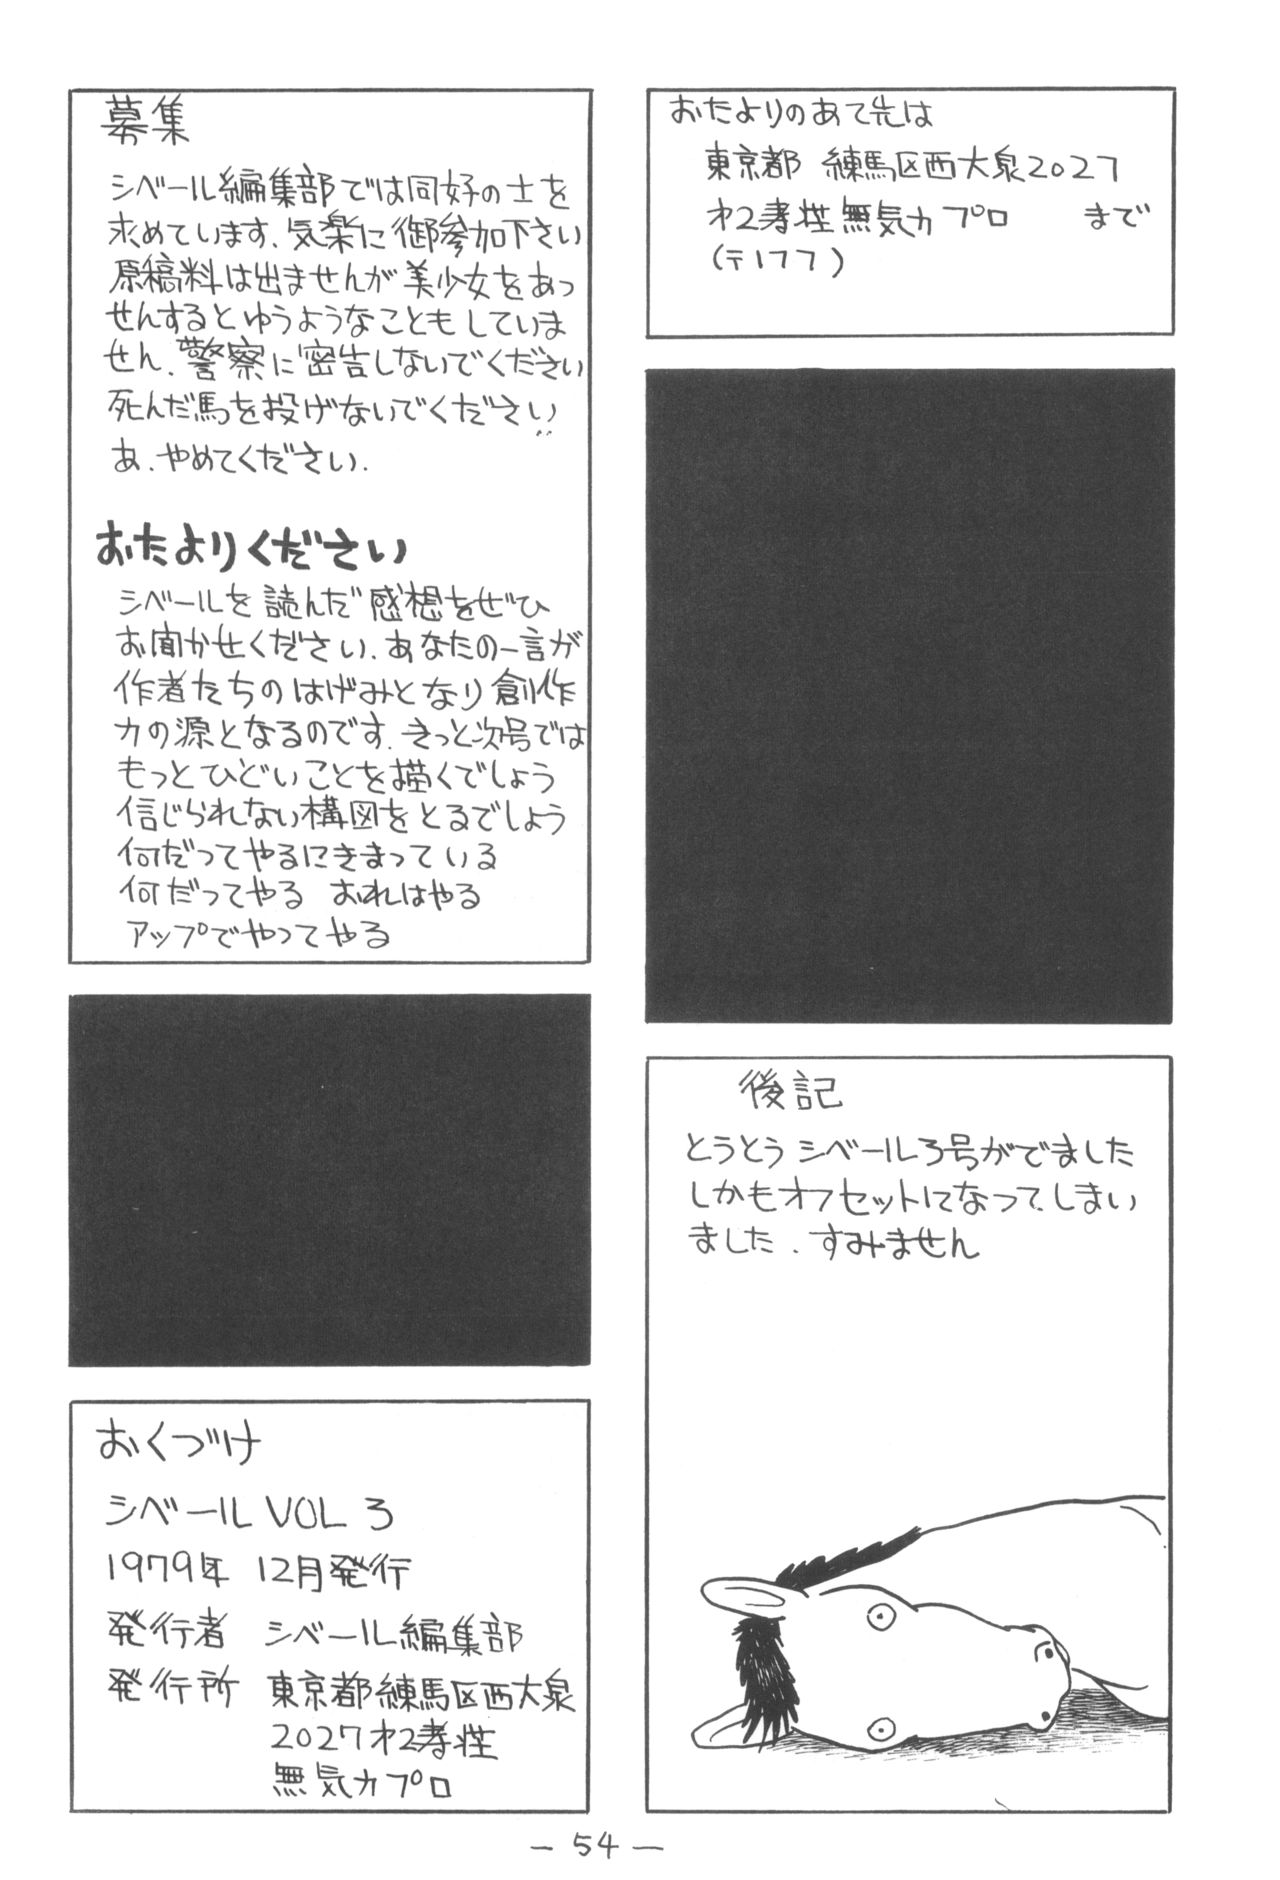 募集
シベール編集部では同好の士を
求めています、気楽に御参加下さい
原稿料は出ませんが美少女をあっ
せんするとゆうようなこともしていま
せん、警察に密告しないでください
死んだ馬を投げないでください
あ、やめてください.
おたよりください
シベールを読んだ感想をぜひ
お聞かせください、あなたの一言が
作者たちのはげみとなり創作
力の源となるのです、きっと次号では
もっとひどいことを描くでしょう
信じられない構図をとるでしょう
何だってやるにきまっている
何だってやる おれはやる
アップでやってやる
おくづけ
シベール VOL 3
1979年 12月発行
発行者 シベール編集部
発行所 東京都練馬区西大泉
2027 才2孝荘
無気力プロ
おたよりのあて先は
東京都 練馬区西大泉2027
才2孝荘無気力プロ まで
(〒177)
後記
とうとうシベール3号がでました
しかもオフセットになってしまい
ました. すみません
— 54 —